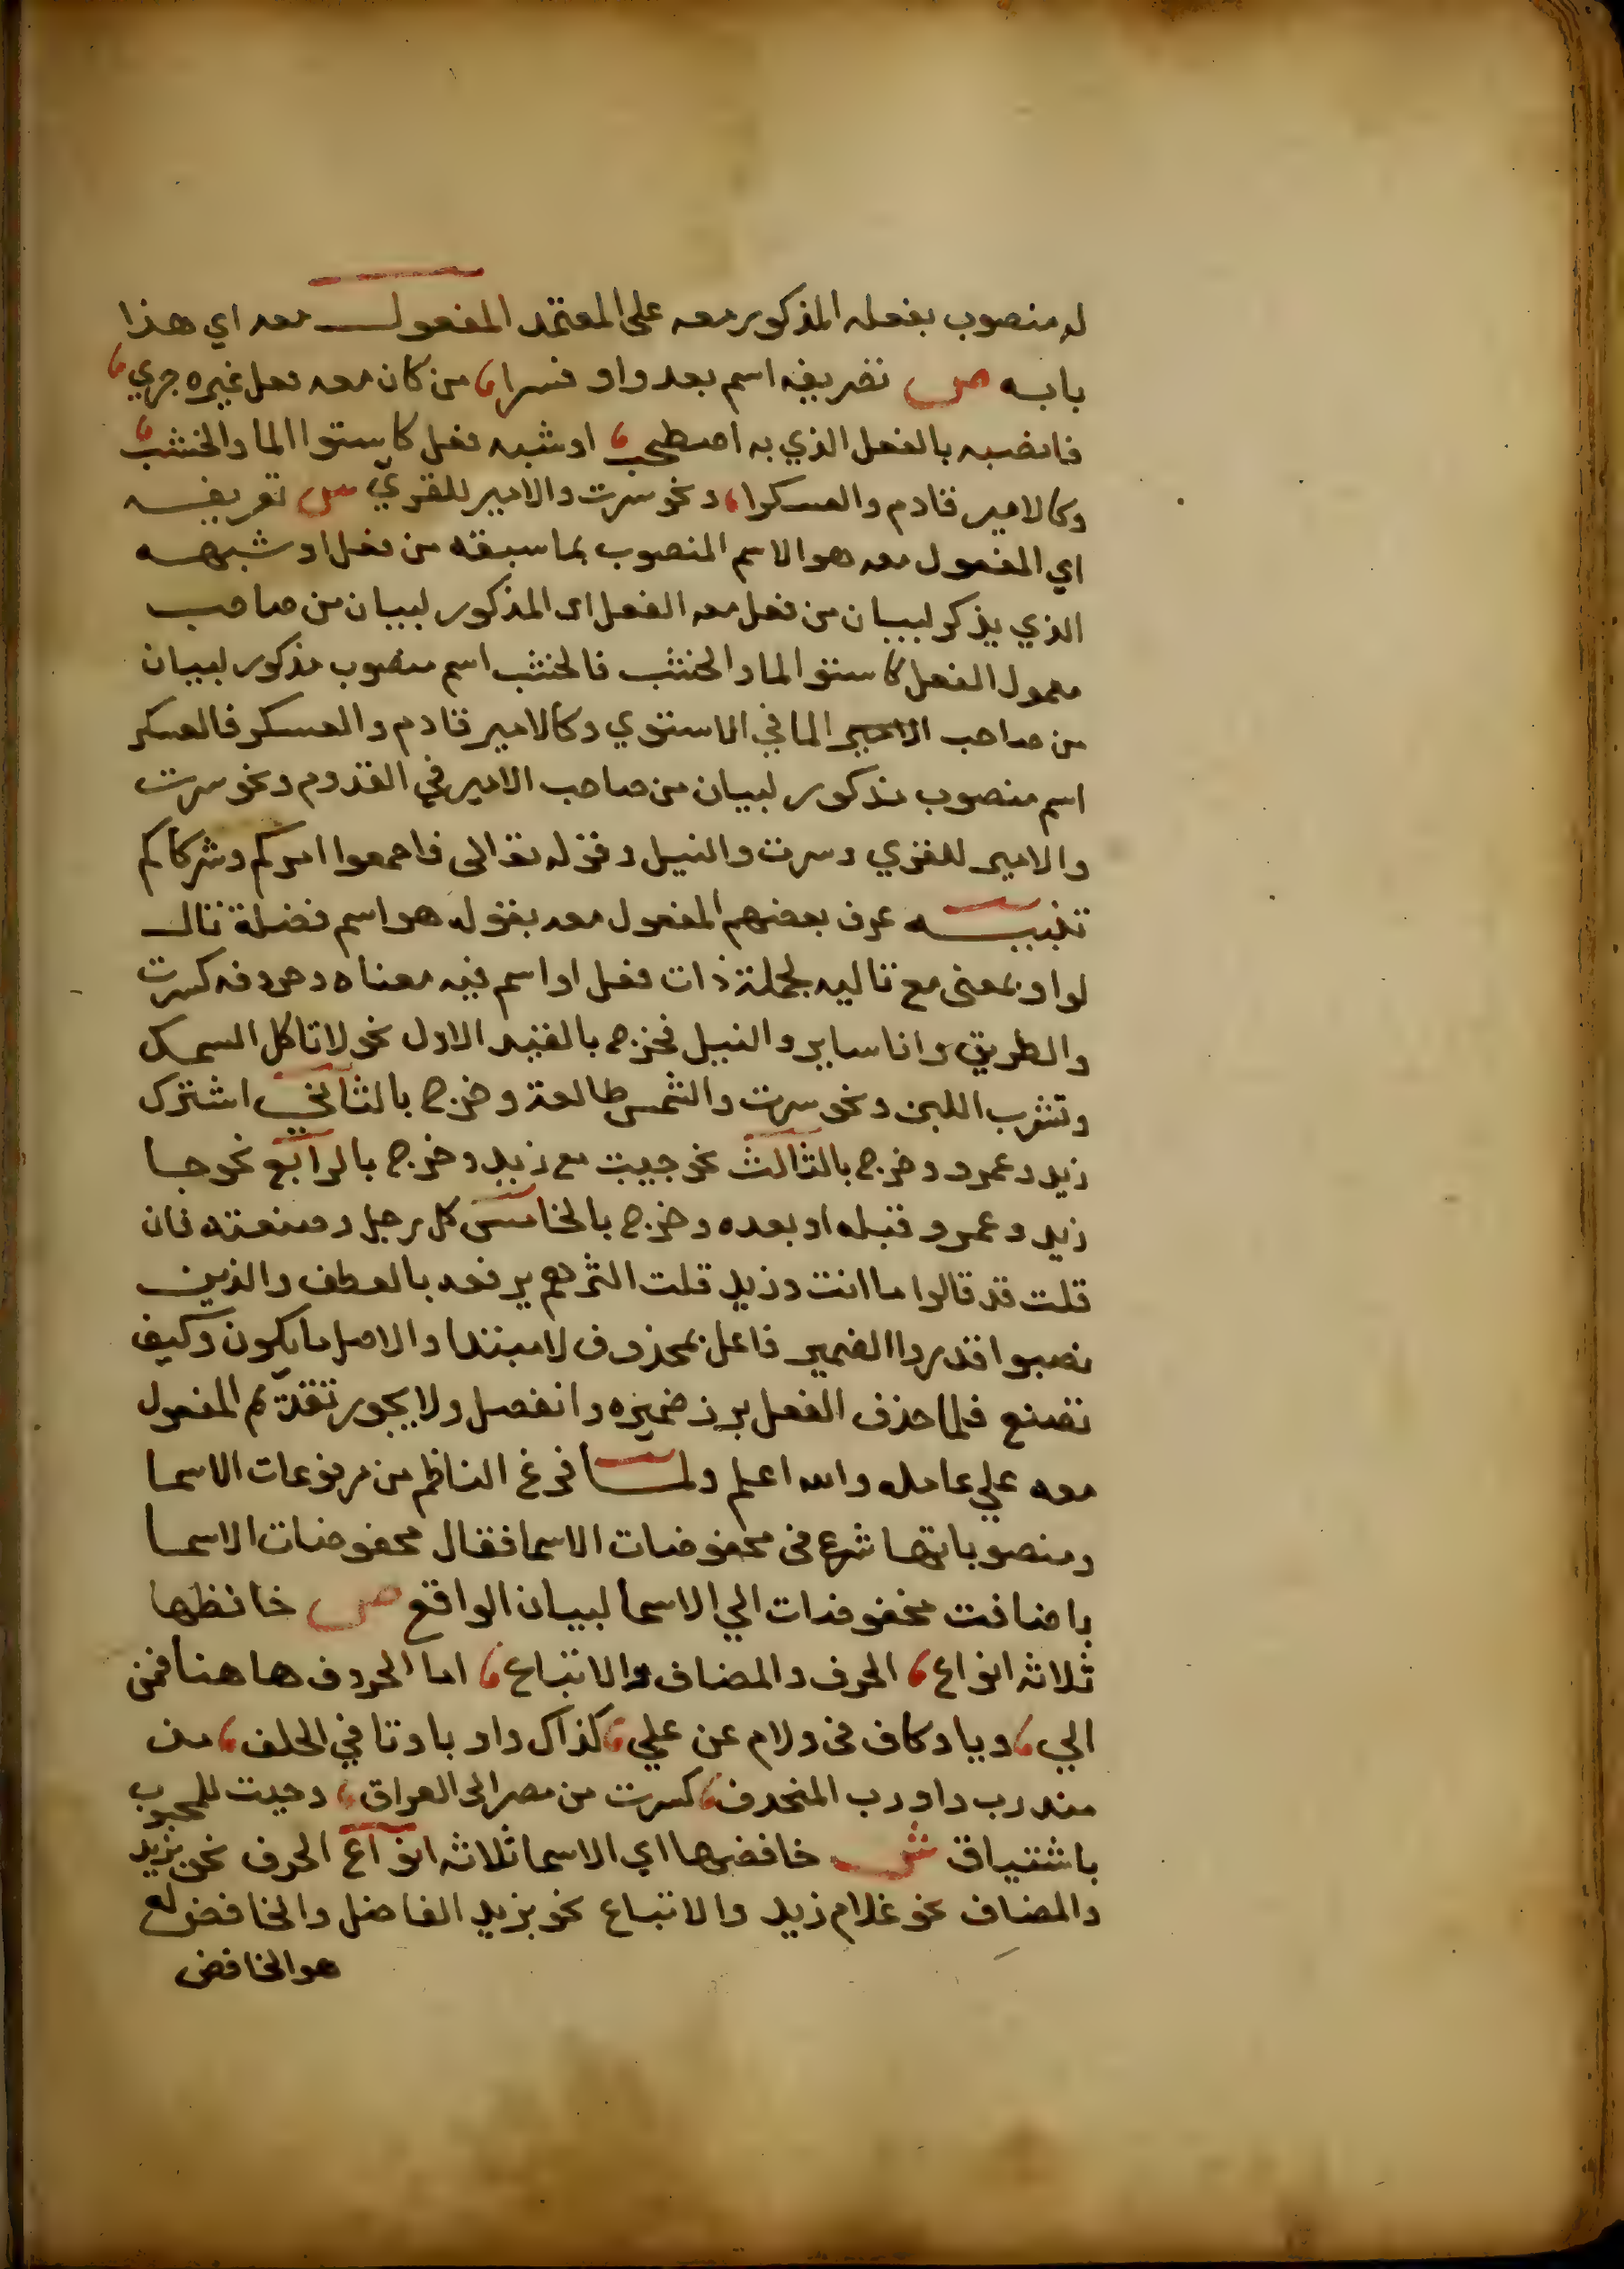 له منصوب بفعله المذكور معه على المعتمد المفعول معه اي هذا
بابه ص تعريفه اسم بعد واو فسرا من كان معه فعل غيره جري
فانصبه بالفعل الذي به اصطحب او شبه فعل كاستوا الما والخشب
وكالامير قادم والعسكرا ونحو سرت والامير للقري ش تعريفه
اي المفعول معه هو الاسم المنصوب بما سبقه من فعل او شبهه
الذي يذكر لبيان من فعل معه الفعل اى المذكور لبيان من صاحب
معمول الفعل كاستوا الما والخشب فالخشب اسم منصوب مذكور لبيان
من صاحب الما في الاستوي وكالامير قادم والعسكر فالعسكر
اسم منصوب مذكور لبيان من صاحب الامير في القدوم ونحو سرت
والامير للقري وسرت والنيل وقوله تعالى فاجمعوا امركم وشركاكم
تنبيه عرف بعضهم المفعول معه بقوله هو اسم فضلة تال
لواو بمعنى مع تاليه لجملة ذات فعل او اسم فيه معناه وحروفه كسرت
والطريق وانا ساير والنيل فخرج بالقيد الاول نحو لا تاكل السمك
وتشرب اللبن ونحو سرت والشمس طالعة وخرج بالثاني اشترك
زيد وعمرو وخرج بالثالث نحو جيت مع زيد وخرج بالرابع نحو جا
زيد وعمرو قبله او بعده وخرج بالخامس كل رجل وصنعته فان
قلت قد قالوا ما انت وزيد قلت اكثرهم يرفعه بالعطف والذين
نصبوا قدروا الضمير فاعل بمحذوف لا مبتدا والاصل ما تكون وكيف
تصنع فلما حذف الفعل برز ضميره وانفصل ولا يجوز تقدم المفعول
معه علي عامله والله اعلم ولما فرغ الناظم من مرفوعات الاسما
ومنصوباتها شرع في مخفوضات الاسما فقال مخفوضات الاسما
باضافت مخفوضات الي الاسما لبيان الواقع ص خافظها
ثلاثه انواع الحرف والمضاف والاتباع اما الحروف هاهنا فمن
الي وبا وكاف في ولام عن علي كذاك واو با وتا في الحلف مذ
منذ رب واو رب المنحذف كسرت من مصر الى العراق وجيت للمحبوب
باشتياق ش خافضها اي الاسما ثلاثه انواع الحرف نحو بزيد
والمضاف نحو غلام زيد والاتباع نحو بزيد الفاضل والخافض له
هو الخافض